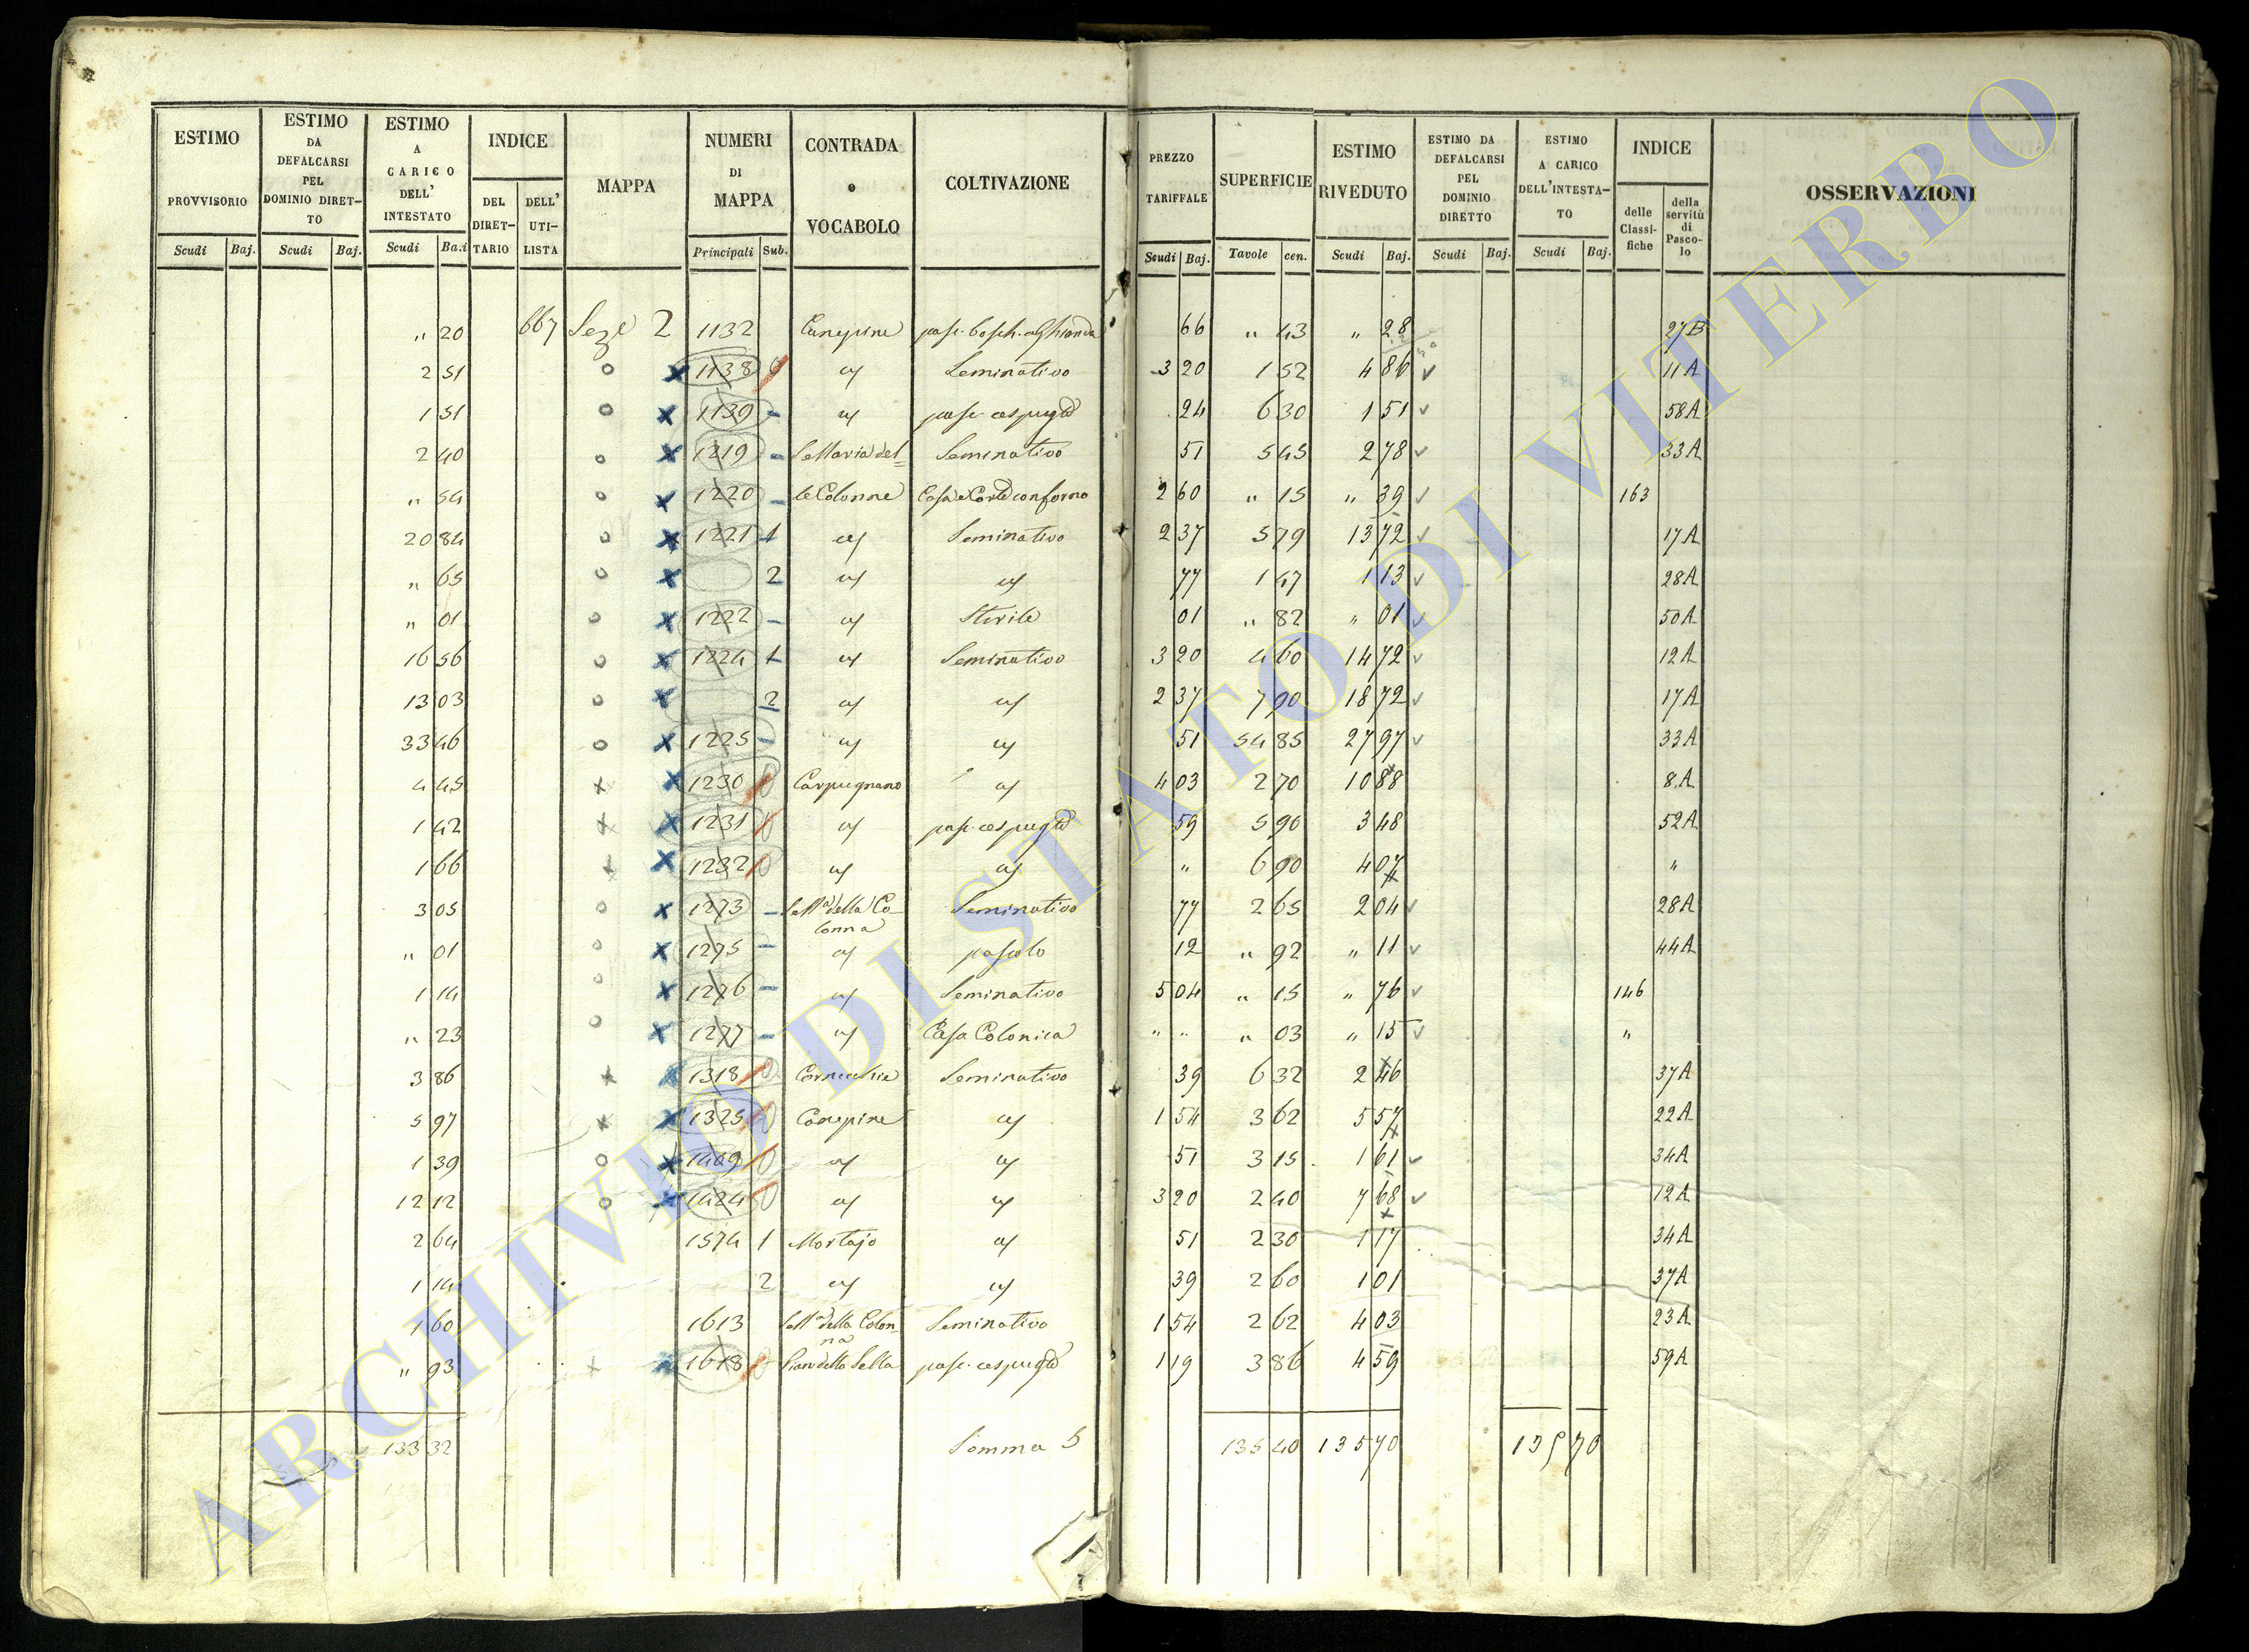 ESTIMO PROVVISORIO Scudi Baj.
ESTIMO DA DEFALCARSI PEL DOMINIO DIRET-TO Scudi Baj.
ESTIMO A CARICO DELL' INTESTATO Scudi Ba.i
INDICE DEL DIRET-TARIO DELL' UTI-LISTA
MAPPA
NUMERI DI MAPPA Principali Sub.
CONTRADA o VOCABOLO
COLTIVAZIONE
PREZZO TARIFFALE Scudi Baj.
SUPERFICIE Tavole cen.
ESTIMO RIVEDUTO Scudi Baj.
ESTIMO DA DEFALCARSI PEL DOMINIO DIRETTO Scudi Baj.
ESTIMO A CARICO DELL'INTESTA-TO Scudi Baj.
INDICE delle Classi-fiche della servitù di Pasco-lo
OSSERVAZIONI
" 20 667 Sez.e 2 1132 Canepine pasc. bosch. a Ghianda 66 " 43 " 28 27B
2 51 o x 1138 0 " Seminativo 3 20 1 52 4 86 11A
1 51 o x 1139 - " pasc. cespuglio 24 6 30 1 51 58A
2 40 o x 1219 - S. Maria del= Seminativo 51 5 45 2 78 33A
" 54 o x 1220 - le Colonne Casa e Corte con forno 2 60 " 15 " 39 163
20 84 o x 1221 1 " Seminativo 2 37 5 79 13 72 17A
" 65 o x 2 " " 77 1 47 1 13 28A
" 01 o x 1222 - " Sterile 01 " 82 " 01 50A
16 56 o x 1224 1 " Seminativo 3 20 4 60 14 72 12A
13 03 o x 2 " " 2 37 7 90 18 72 17A
33 46 o x 1225 - " " 51 54 85 27 97 33A
4 45 x x 1230 0 Carpugnano " 4 03 2 70 10 88 8A
1 42 x x 1231 0 " pasc. cespuglio 59 5 90 3 48 52A
1 66 x x 1232 0 " " " 6 90 4 07 "
3 05 o x 1273 - S. M.a della Co-lonna Seminativo 77 2 65 2 04 28A
" 01 o x 1275 - " pascolo 12 " 92 " 11 44A
1 14 o x 1276 - " Seminativo 5 04 " 15 " 76 146
" 23 o x 1277 - " Casa Colonica " " " 03 " 15 "
3 86 x x 1318 0 Cornecchia Seminativo 39 6 32 2 46 37A
5 97 x x 1325 0 Canepine " 1 54 3 62 5 57 22A
1 39 o x 1409 0 " " 51 3 15 1 61 34A
12 12 o x 1424 0 " " 3 20 2 40 7 68 12A
2 64 1574 1 Mortajo " 51 2 30 1 17 34A
1 14 2 " " 39 2 60 1 01 37A
1 60 1613 S. M.a della Colon-na Seminativo 1 54 2 62 4 03 23A
" 93 x x 1618 0 Pian della Sella pasc. cespuglio 1 19 3 86 4 59 59A
133 32 Somma S 135 40 135 70 135 70
ARCHIVIO DI STATO DI VITERBO